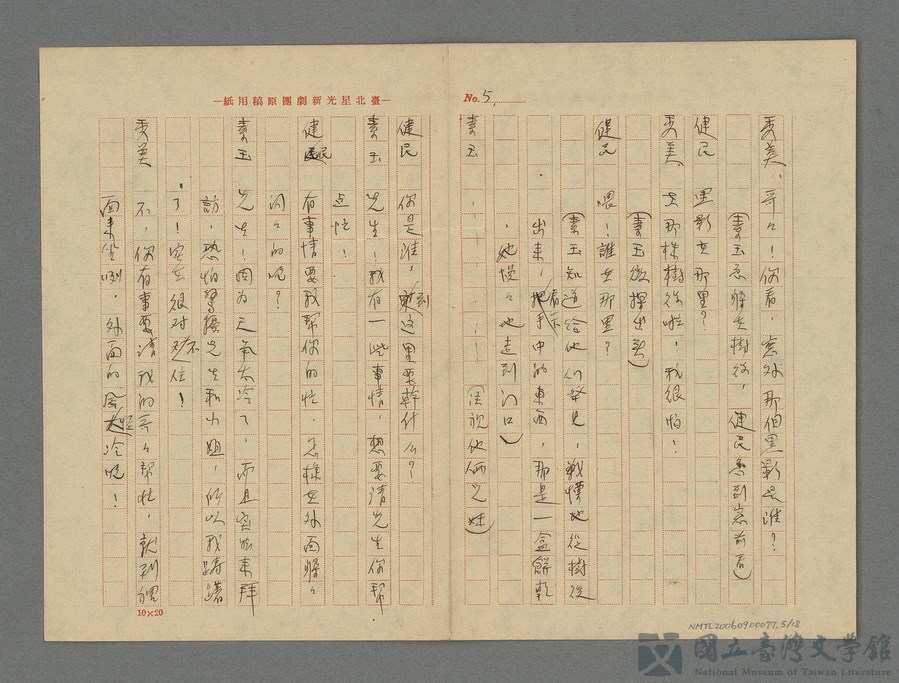 No. 5,
秀美、哥々！你看，窓外那個黑影是誰？
（素玉急躲在樹後，健民急到窓前看）
健民 黑影在那里？
秀美 在那株樹後啦！我很怕！
（素玉微探出頭）
健民 喂！誰在那里？
（素玉知道給他们發見，戰慄地從樹後
出来，把手中的東西，那是一盒餅乾
，她慢々地走到门口）
素玉 ………！（注視他俩兄妹）
—臺北星光新劇團原稿用紙—
健民 你是誰，到這里要幹什么？
素玉 先生！我有一些事情，想要請先生你幫
点忙！
健民 有事情要我幫你的忙，怎樣在外面躲々
闪々的呢？
素玉 先生！因为天氣太冷了，而且突然来拜
訪，恐怕驚擾先生和小姐，所以我躊躇
了！实在很对不住！
秀美 不，你有事要請我的哥々幫忙，就到裡
面来坐啊，外面的風挺冷呢！
10×20
NMTL20060900077, 5/18
國立臺灣文学館
National Museum of Taiwan Literature